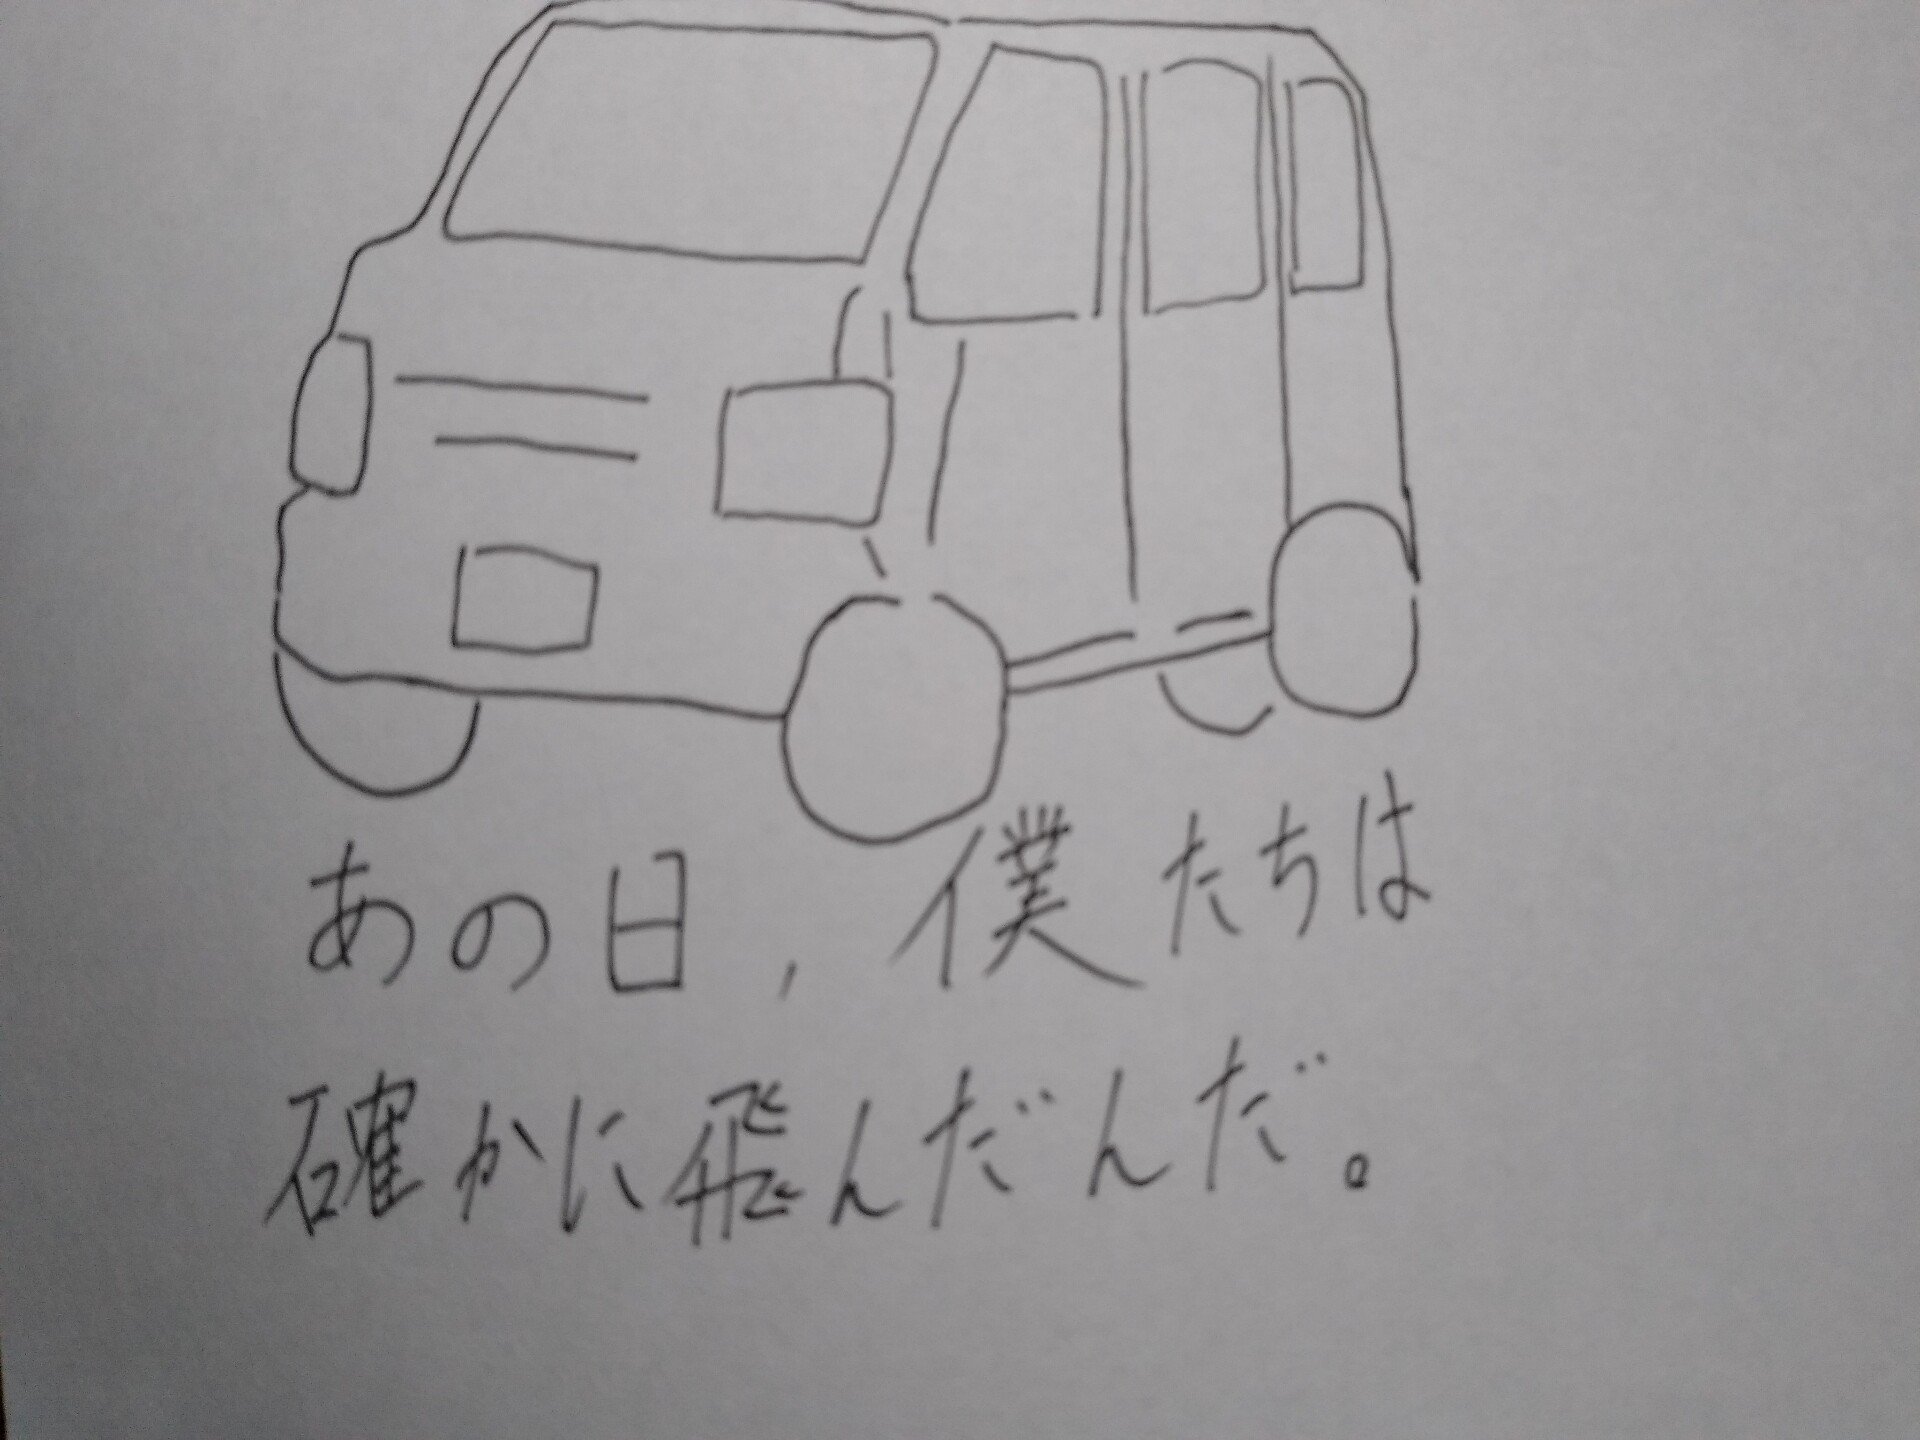 あの日,僕たちは
確かに飛んだんだ。